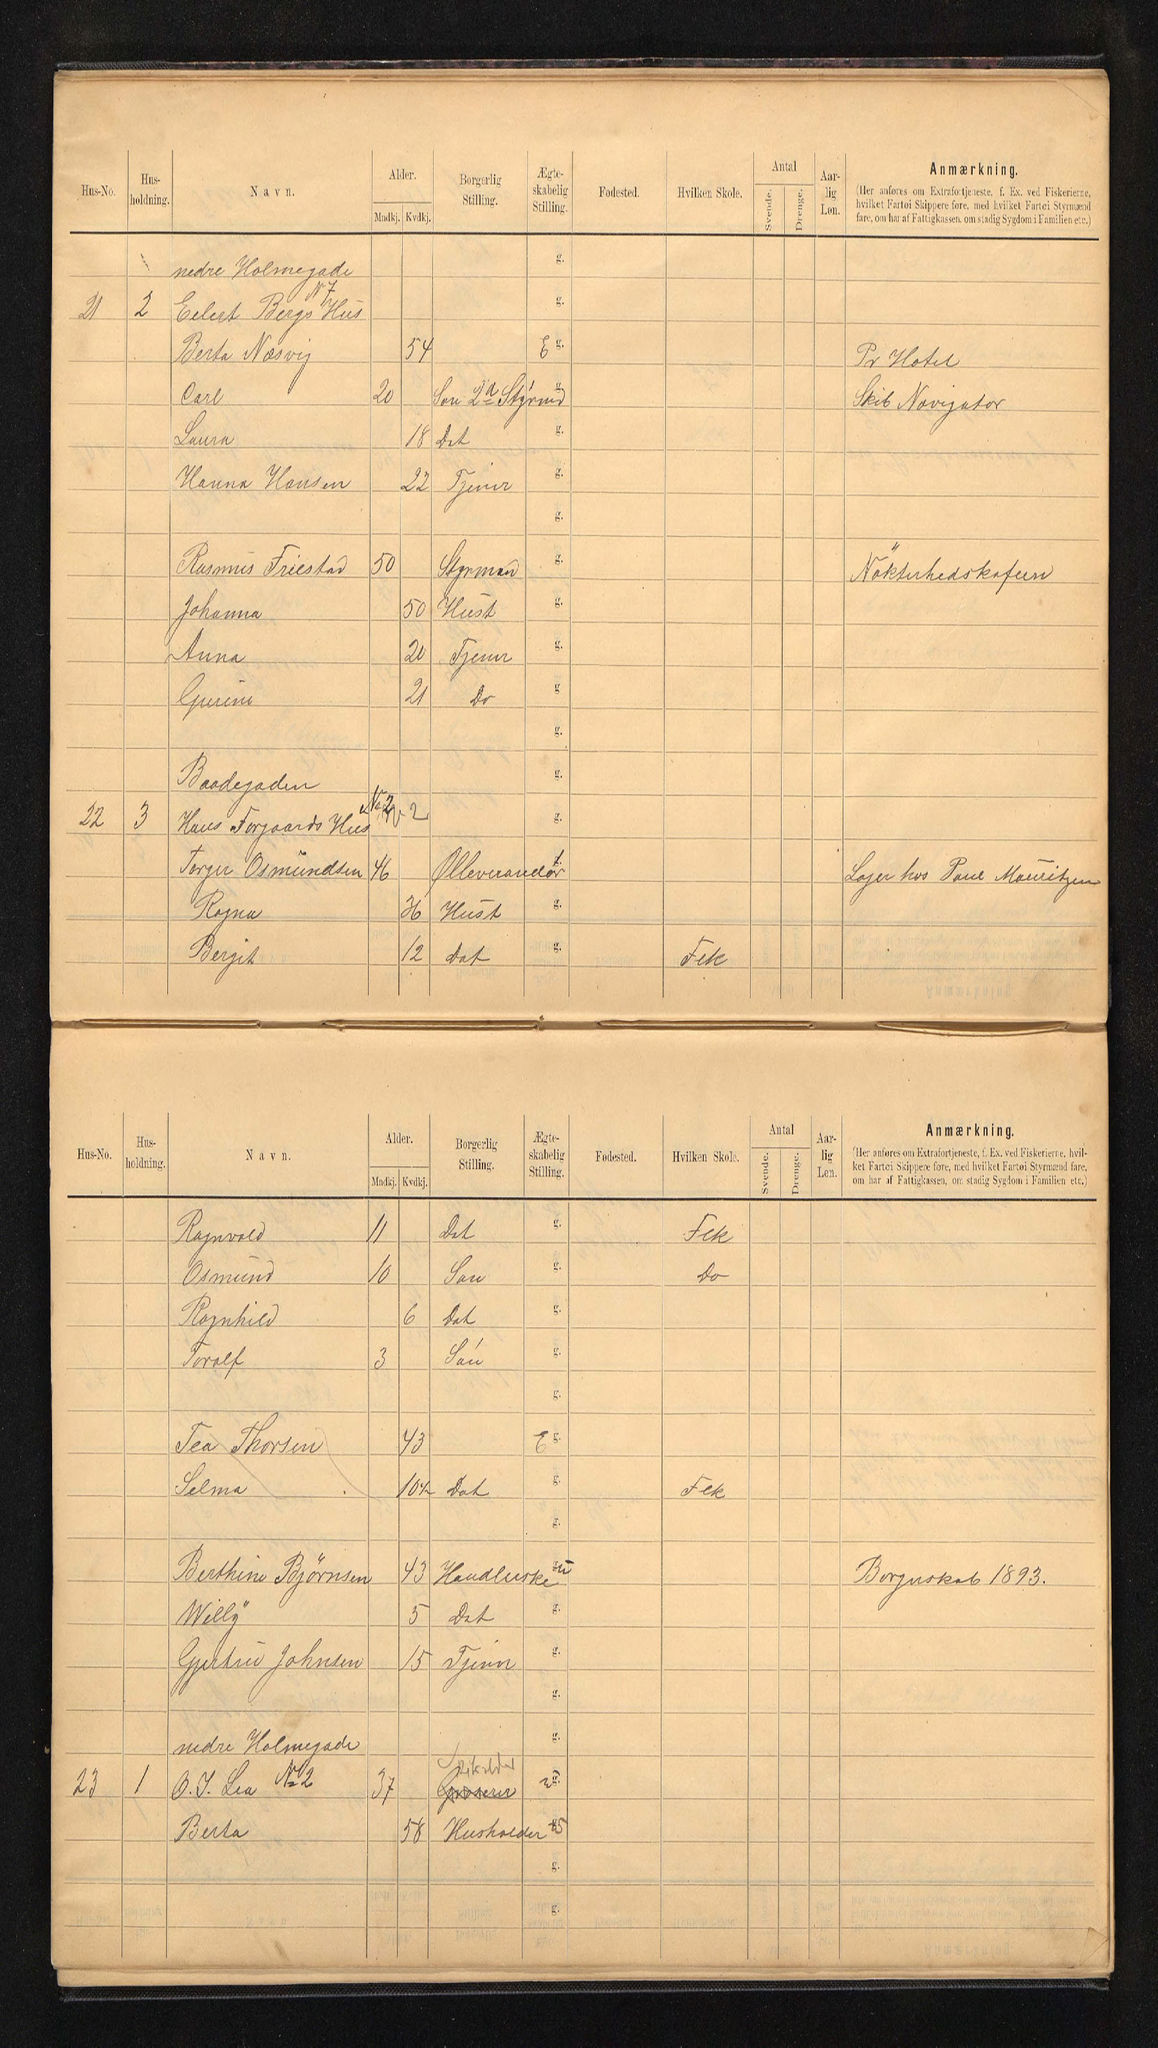 Hus-No. Hus-holdning. Navn. Alder. Mndkj. Kvdkj. Borgerlig Stilling. Ægte-skabelig Stilling. Fødested. Hvilken Skole. Antal Svende. Drenge. Aar-lig Løn. Anmærkning.
(Her anføres om Extrafortjeneste, f. Ex. ved Fiskerierne, hvilket Fartøi Skippere føre, med hvilket Fartøi Styrmænd fare, om har af Fattigkassen, om stadig Sygdom i Familien etc.)
nedre Holmegade g.
21 2 Eilert Bergs Hus N 7 g.
Berta Næsvig 54 E g. Pr Hotel
Carl 20 Søn 2d Styrmd g. Skib Navigator
Laura 18 Dat g.
Hanna Hansen 22 Tjener g.
g.
Rasmus Friestad 50 Styrman g. Nökterhedskafeen
Johanna 50 Hust g.
Anna 20 Tjener g.
Gurine 21 Do g.
g.
Baadegaden g.
22 3 Hans Torgaards Hus No 2 g.
Torger Osmundsen 46 Ølleverandør g. Lager hos Paul Mauritzen
Ragna 36 Hust g.
Bergit 12 Dat g. Flk
Hus-No. Hus-holdning. Navn. Alder. Mndkj. Kvdkj. Borgerlig Stilling. Ægte-skabelig Stilling. Fødested. Hvilken Skole. Antal Svende. Drenge. Aar-lig Løn. Anmærkning.
(Her anføres om Extrafortjeneste, f. Ex. ved Fiskerierne, hvil-ket Fartøi Skippere føre, med hvilket Fartøi Styrmænd fare, om har af Fattigkassen, om stadig Sygdom i Familien etc.)
Ragnvald 11 Dat g. Flk
Osmund 10 Søn g. Do
Ragnhild 6 Dat g.
Toralf 3 Søn g.
g.
Tea Thorsen 43 E g.
Selma 10½ Dat g. Flk
g.
Berthine Bjørnsen 43 Handlerske u Borgerskab 1893.
Willy 5 Dat g.
Gjertrud Johnsen 15 Tjener g.
g.
nedre Holmegade g.
23 1 O. J. Lea No 2 37 g.
Berta 58 Husholder
g.
g.